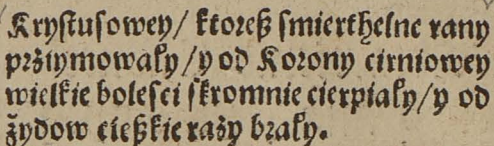 Krystusowey/ ktoreß smierthelne rany
prżiymowały/ y od Korony cirniowey
wielkie bolesci skromnie cierpiały/ y od
żydow cießkie razy brały.